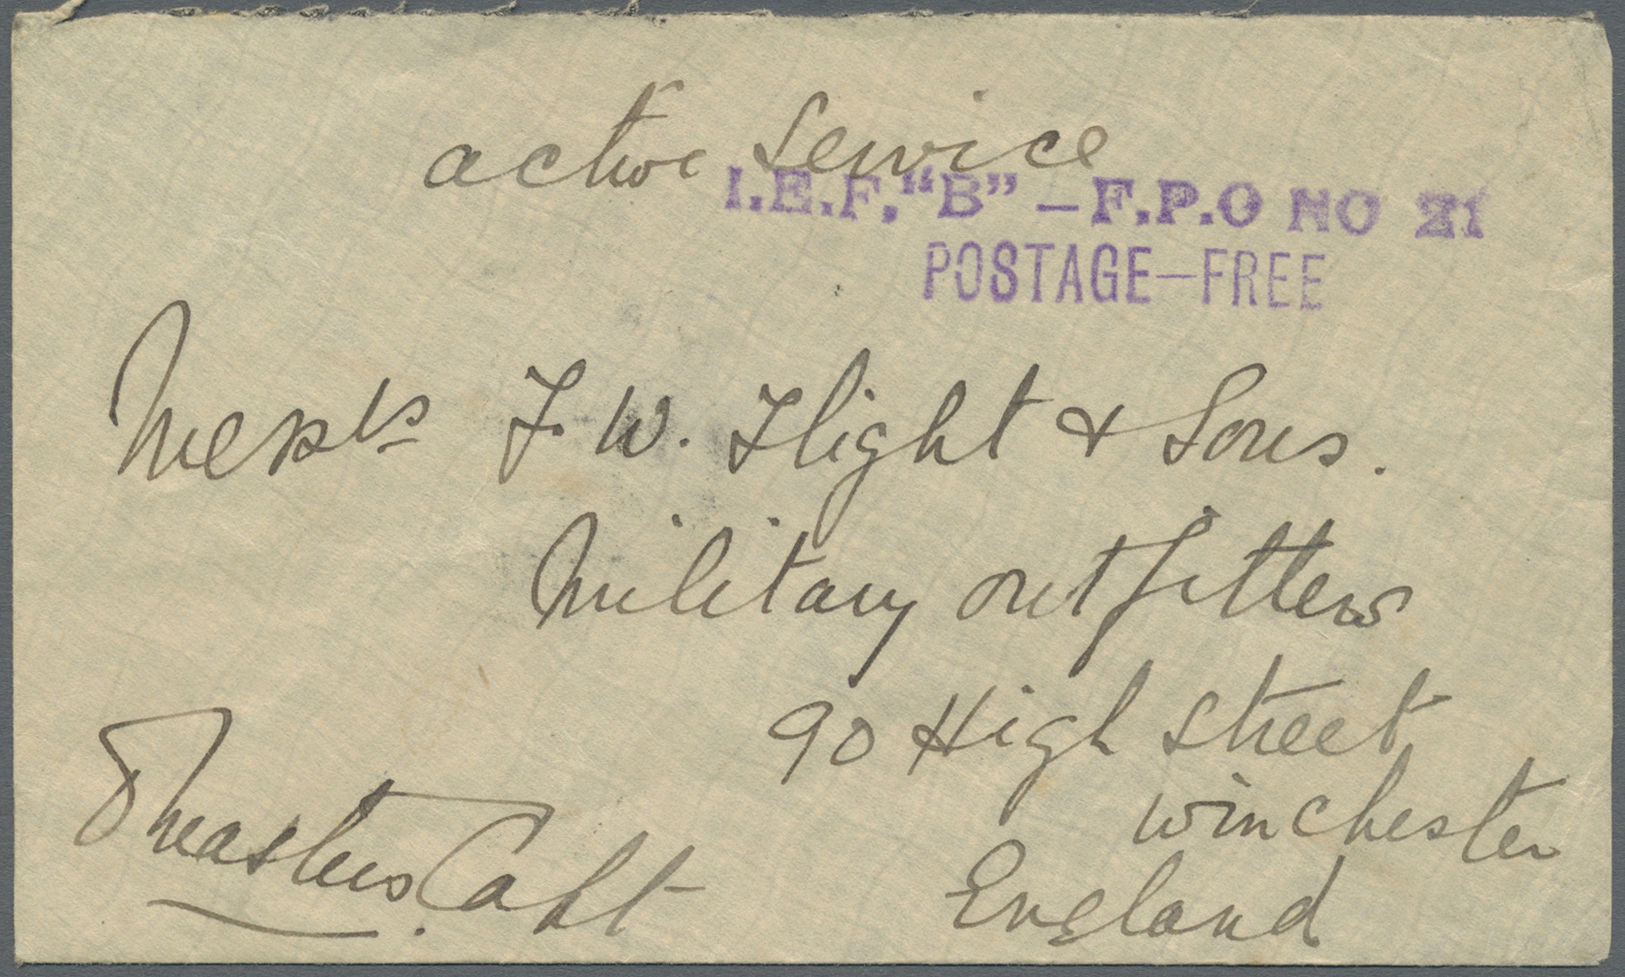 active Service
I.E.F. “B” – F.P.O NO 21
POSTAGE–FREE
Messrs F. W. Flight & Sons.
Military outfitters
90 High Street
Winchester
England
Masters. Capt